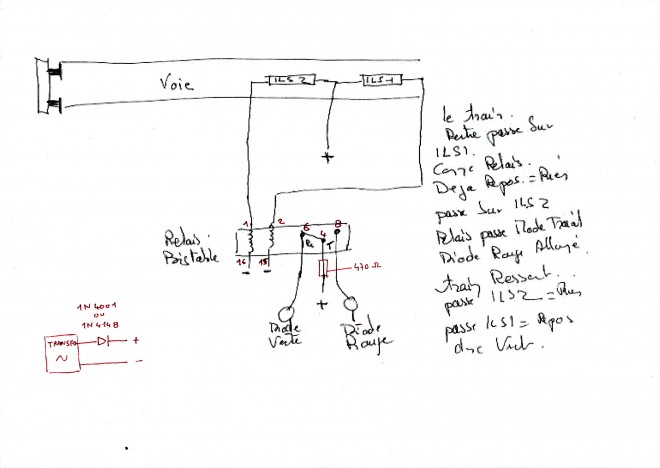 Voie
ILS 2
ILS1
+
le train.
Rentre passe Sur
ILS1.
Relais.
Deja Repos. = Rien
passe Sur ILS2
Relais passe Mode Travail
Diode Rouge Allumé.
train Ressort.
passe ILS2 = Rien
passe ILS1 = Repos
donc Vert.
Relais
Bistable
1 2 6 4 8
R T
16 15
- -
470 Ω
+
Diode
Verte
Diode
Rouge
1N4001
ou
1N4148
TRANSFO
~
+
-